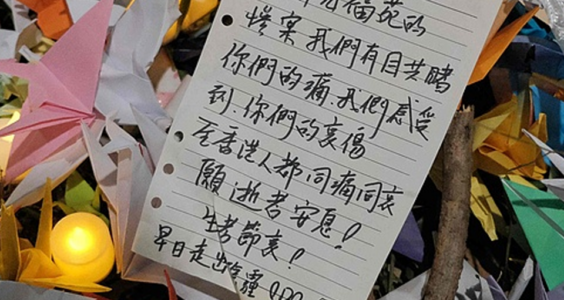 福苑的
慘案我們有目共睹
你們的痛、我們感受
到、你們的哀傷
全香港人都同痛同哀
願逝者安息!
生者節哀!
早日走出陰霾